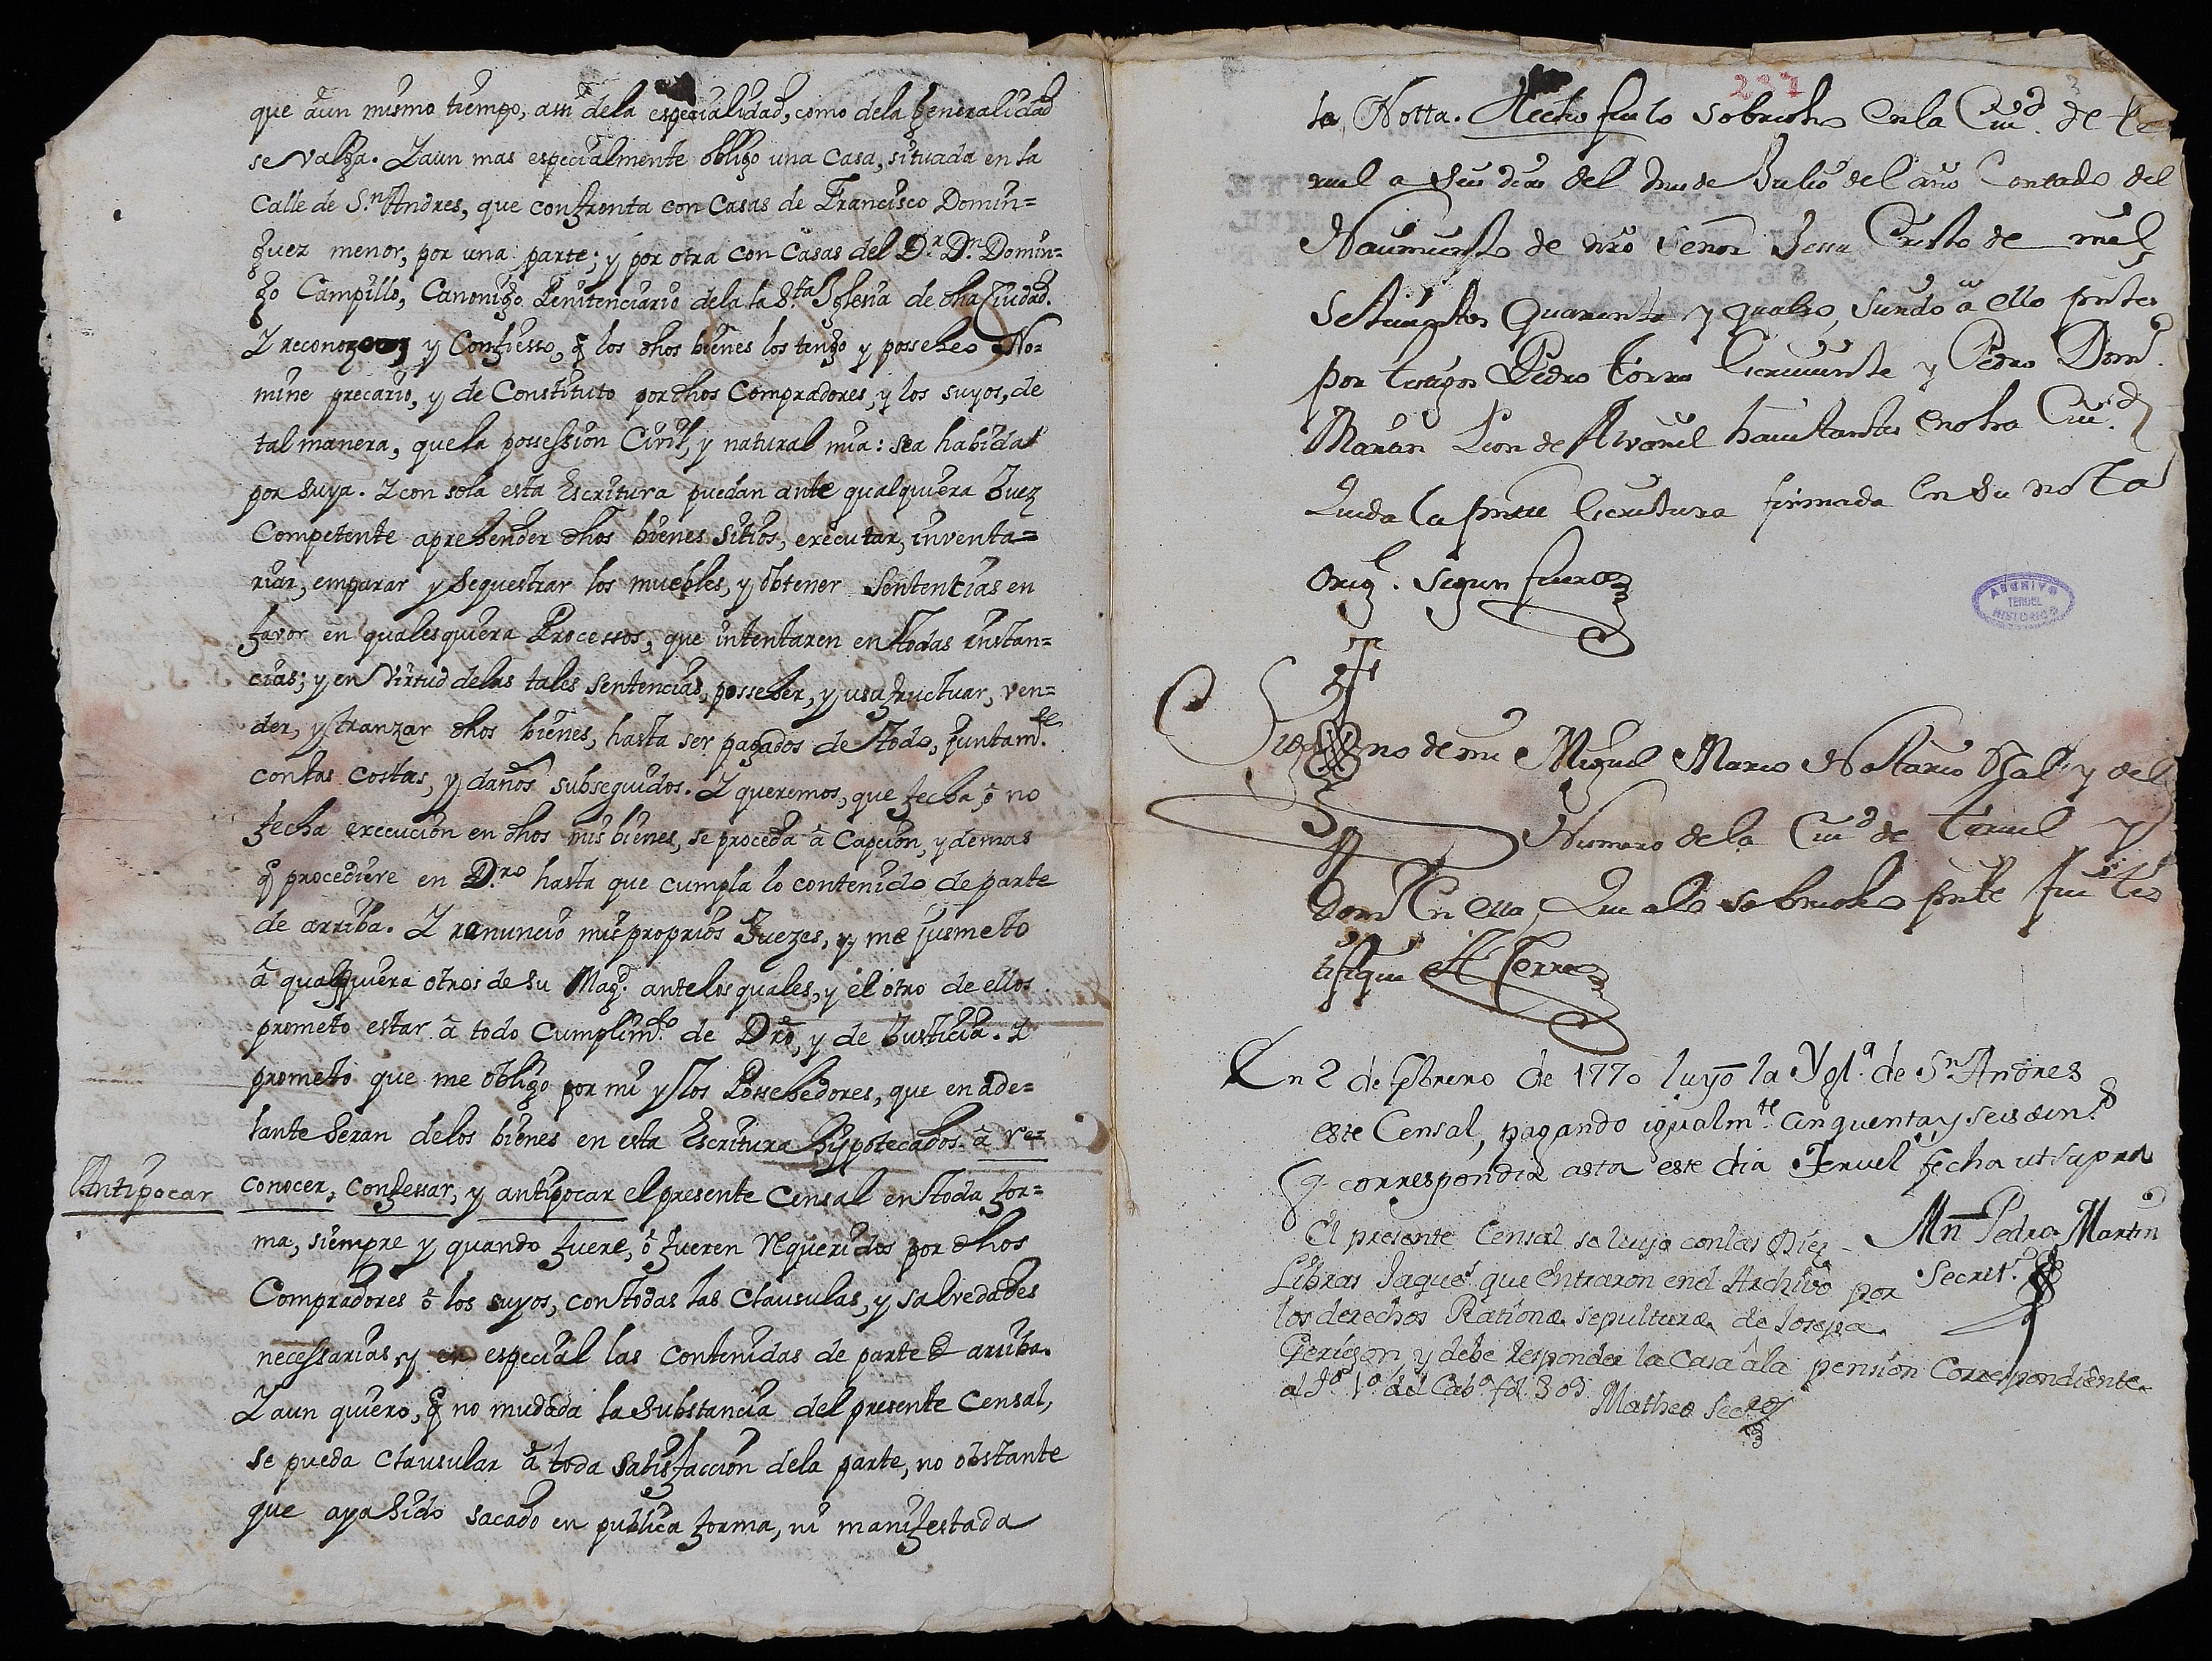 que aun mismo tiempo, assi dela especialidad, como dela generalidad
se valga. Y aun mas especialmente obligo una Casa, situada en la
Calle de S.n Andres, que confronta con Casas de Francisco Domin=
guez menor, por una parte; y por otra con Casas del D.r D.n Domin=
go Campillo, Canonigo Penitenciario dela la S.ta Iglesia de dha Ciudad.
Y reconozco, y Confiesso, q los dhos bienes los tengo y posseheo No=
mine precario, y de Constituto por dhos Compradores, y los suyos, de
tal manera, que la possession Civil, y natural mia: sea habida
por suya. Y con sola esta Escritura puedan ante qualquiera Juez
Competente aprehender dhos bienes sitios, executar, inventa=
riar, emparar y sequestrar los muebles, y obtener Sentencias en
favor en qualesquiera Processos, que intentaren en todas instan=
cias; y en virtud delas tales Sentencias, posseher, y usufructuar, ven=
der, y tranzar dhos bienes, hasta ser pagados de todo, juntam.te
con las costas, y daños subseguidos. Y queremos, que fecha, ô no
fecha execucion en dhos mis bienes, se proceda â Capcion, y demas
q procediere en D.ro hasta que cumpla lo contenido de parte
de arriba. Y renuncio mis proprios Juezes, y me jusmeto
â qualquiera otros de su Mag.d antelos quales, y el otro de ellos
prometo estar â todo Cumplim.to de Dro, y de Justicia. Y
prometo que me obligo por mi y los Possehedores, que en ade=
lante seran delos bienes en esta Escritura hipotecados â re=
Antipocar
conocer, confessar, y antipocar el presente Censal en toda for=
ma, siempre y quando fuere, ô fueren requeridos por dhos
Compradores ô los suyos, con todas las Clausulas, y salvedades
necessarias, y en especial las contenidas de parte de arriba.
Y aun quiero, q no mudada la substancia del presente Censal,
se pueda Clausular â toda satisfaccion dela parte, no obstante
que aya sido sacado en publica forma, ni manifestada
237
la Notta. Hecho fue lo sobredho en la Ciu.d de Te
ruel a seis dias del mes de Julio del año Contado del
Nacimiento de nro Señor Jesu Cristo de mil
Setecientos Quarenta y quatro, siendo â ello pntes
por testigos Pedro Torres escriviente y Pedro Dom.o
Marin Peon de Alvañil havitantes en dha Ciu.d
Queda la pnte escritura firmada en su nota
Orig.l segun fuero
Sig no de mi Miguel Marco Notario Rgal y del
Numero de la Ciu.d de Teruel y
Dom.do en ella, Que alo sobredho pnte fui tes
tifique et Cerre
En 2 de febrero de 1770 luyo la Ygl.a de S.n Andres
este Censal, pagando igualm.te cinquenta y seis din.s
q correspondia asta este dia Teruel fecha ut supra
Mn Pedro Martin
Secret.o
El presente Censal se luyo con las Diez
Libras Jaque.s que entraron en el Archivo por
los derechos Ratione sepulturæ de Josepa
Gerigon, y debe responder la Casa â la pension Correspondiente
al J.o 1.o del Cab.o fol. 309. Matheo Sec.rio
ARCHIVO
TERUEL
HISTORICO